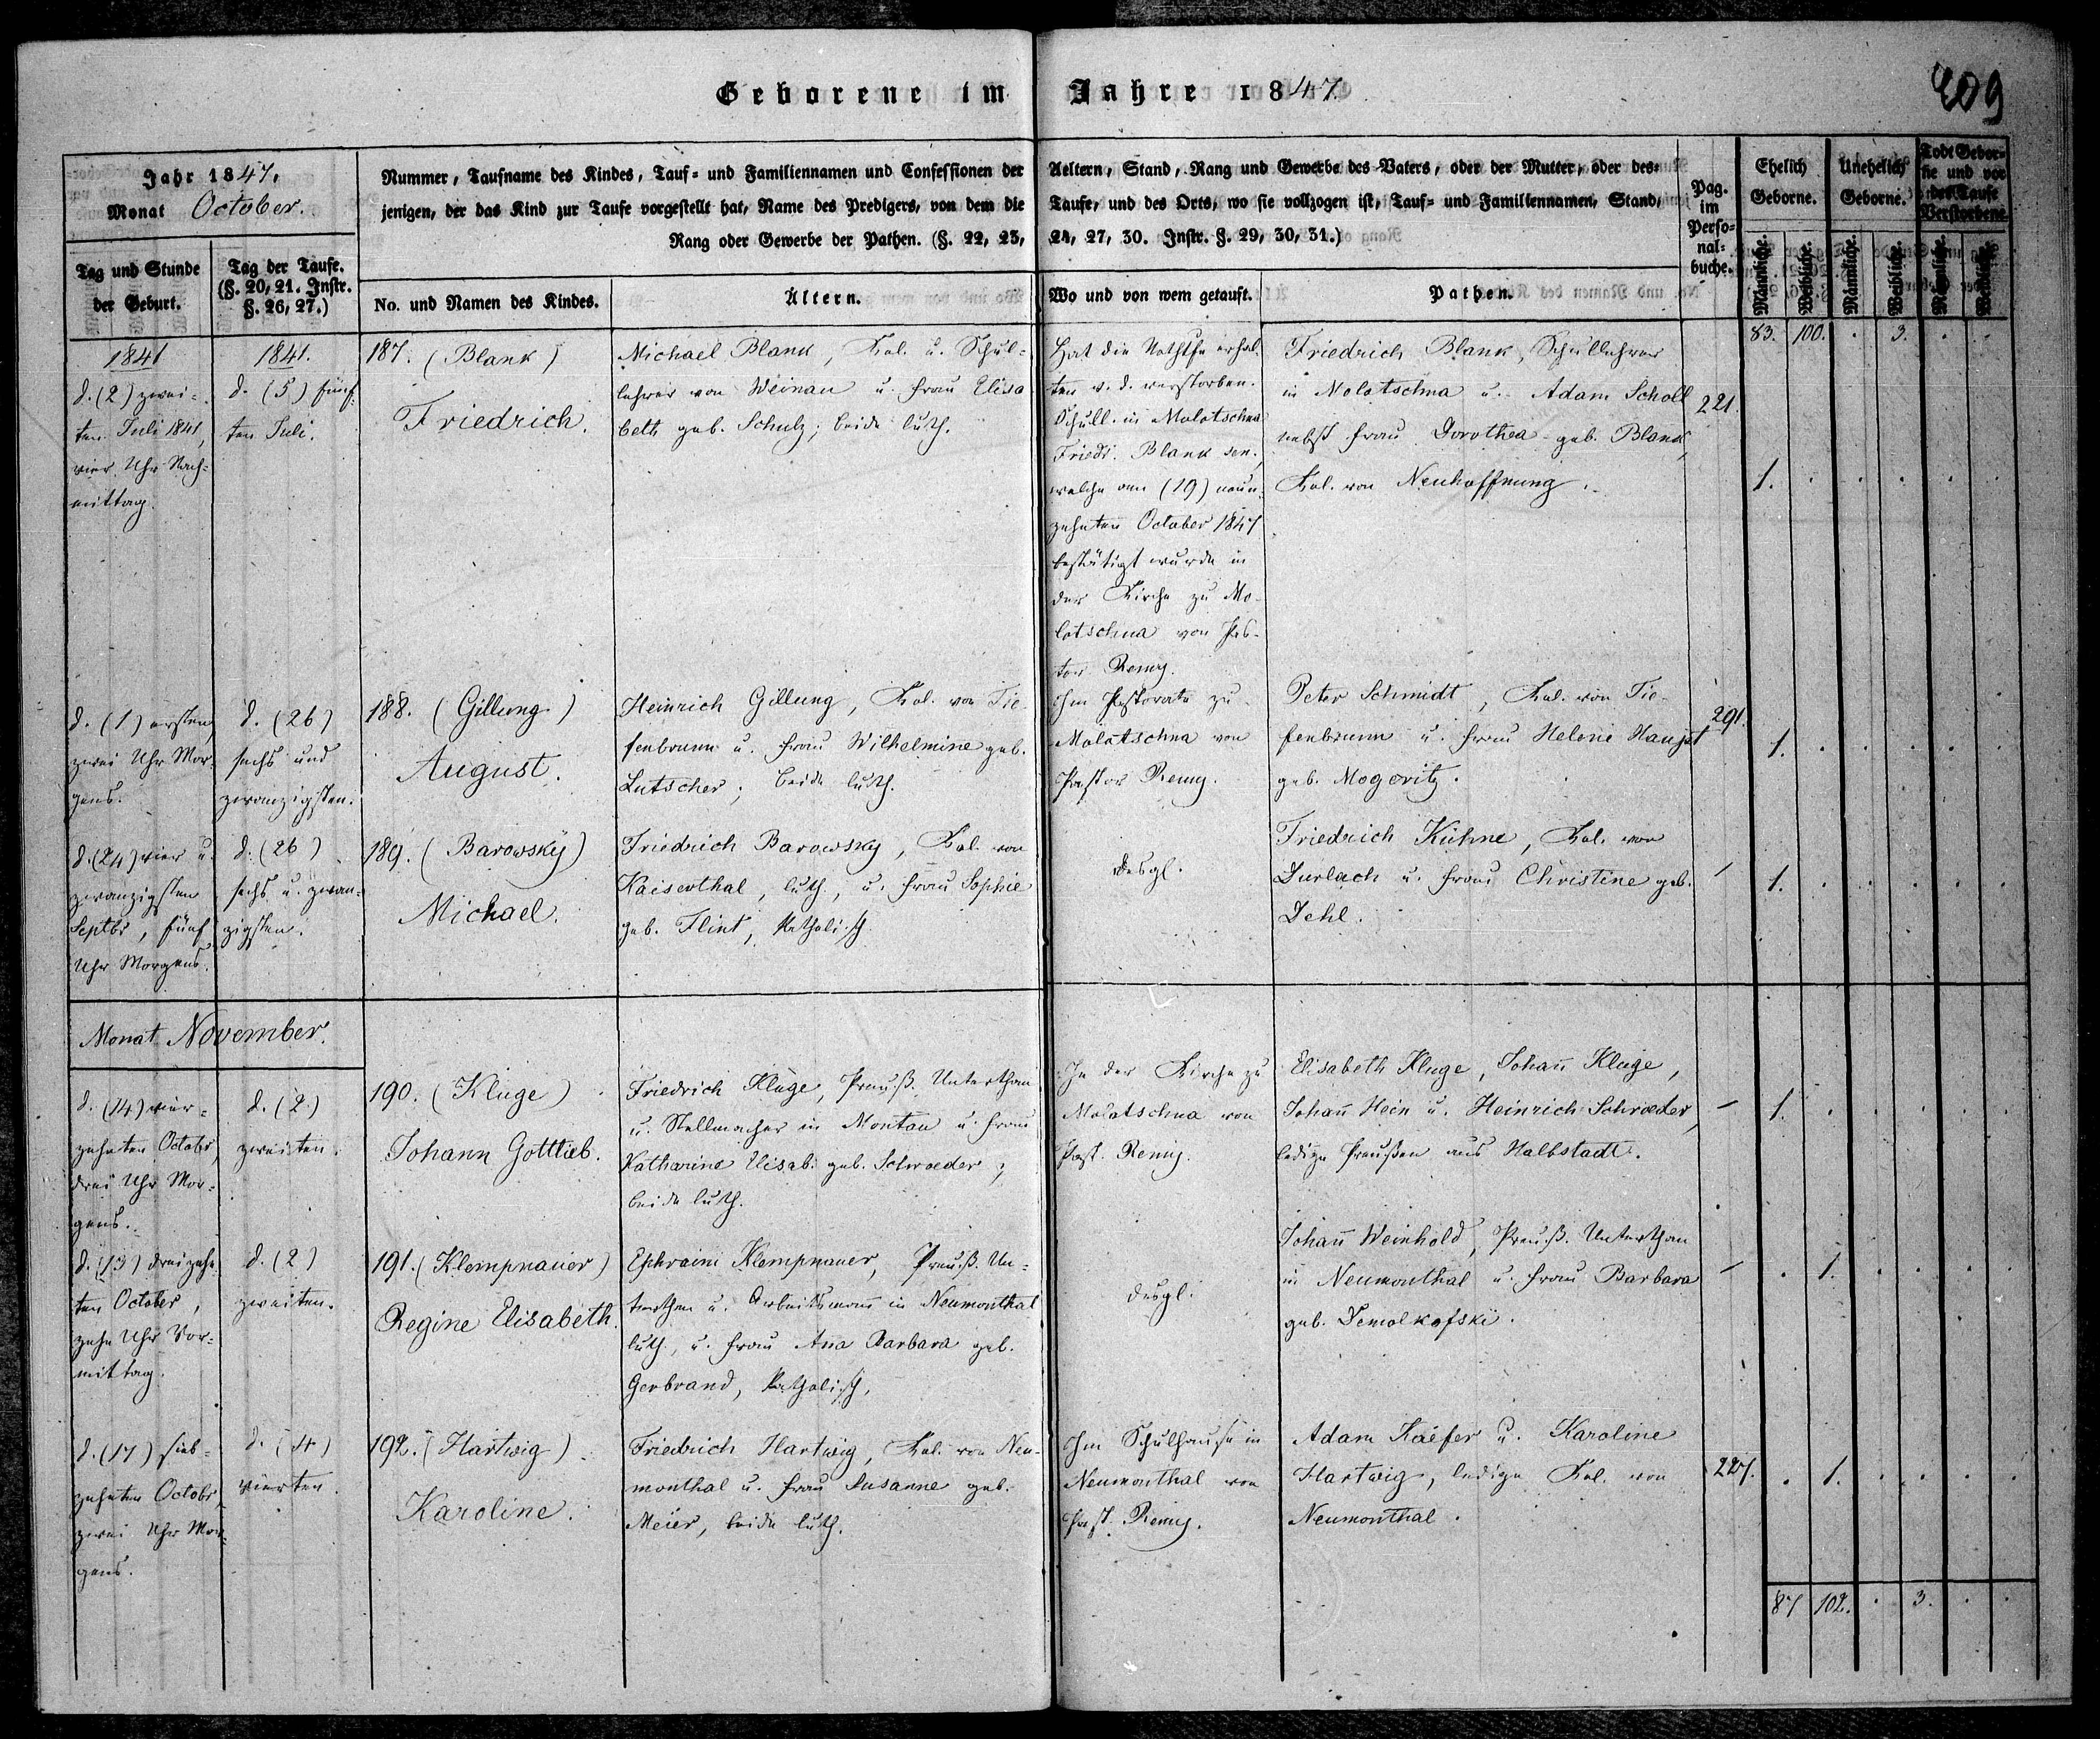 Geborene im Jahre 1847.
209
Jahr 1847.
Monat October.
Tag und Stunde
der Geburt.
Tag der Taufe.
(§. 20, 21. Instr.
§. 26, 27.)
Nummer, Taufname des Kindes, Tauf- und Familiennamen und Confessionen der Aeltern, Stand, Rang und Gewerbe des Vaters, oder der Mutter, oder des-
jenigen, der das Kind zur Taufe vorgestellt hat, Name des Predigers, von dem die Taufe, und des Orts, wo sie vollzogen ist, Tauf- und Familiennamen, Stand,
Rang oder Gewerbe der Pathen. (§. 22, 23, 24, 27, 30. Instr. §. 29, 30, 31.)
No. und Namen des Kindes.
Ältern.
Wo und von wem getauft.
Pathen.
Pag.
im
Perso-
nal-
buche.
Ehelich
Geborne.
Unehelich
Geborne.
Todt Gebor-
ne und vor
der Taufe
Verstorbene
Männliche.
Weibliche.
Männliche.
Weibliche.
Männliche.
Weibliche.
83. 100. . 3. . .
1841
d. (2) zwei-
ten Juli 1841,
vier Uhr Nach-
mittag.
1841.
d. (5) fünf-
ten Juli.
187. (Blank)
Friedrich.
Michael Blank, Kol. u. Schul-
lehrer von Weinau u. Frau Elisa
beth geb. Schulz; beide luth.
Hat die Nothtfe erhal-
ten v. d. verstorben.
Schull. in Molotschna
Friedr. Blank sen.,
welche am (19) neun-
zehnten October 1847
bestätigt wurde in
der Kirche zu Mo-
lotschna von Pas-
tor Remy.
Friedrich Blank, Schullehrer
in Molotschna u. Adam Scholl
nebst Frau Dorothea geb. Blank,
Kol. von Neuhoffnung.
221.
1. . . . . .
d. (1) ersten,
zwei Uhr Mor-
gens.
d. (26)
sechs und
zwanzigsten.
188. (Gillung)
August.
Heinrich Gillung, Kol. von Tie-
fenbrunn u. Frau Wilhelmine geb.
Lutscher; beide luth.
Im Pastorate zu
Molotschna von
Pastor Remy.
Peter Schmidt, Kol. von Tie-
fenbrunn u. Frau Helene Haupt
geb. Mogovitz.
291.
1. . . . . .
d. (24) vier u.
zwanzigsten
Septbr, fünf
Uhr Morgens.
d. (26)
sechs u. zwan-
zigsten.
189. (Barowsky)
Michael.
Friedrich Barowsky, Kol. von
Kaiserthal, luth., u. Frau Sophie
geb. Flint, katholisch.
desgl.
Friedrich Kühne, Kol. von
Durlach u. Frau Christine geb.
Dehl.
1. . . . . .
Monat November.
d. (14) vier-
zehnten Octobr,
drei Uhr Mor-
gens.
d. (2)
zweiten.
190. (Kluge)
Johann Gottlieb.
Friedrich Kluge, Preuß. Unterthan
u. Stellmacher in Montau u. Frau
Katharine Elisab. geb. Schroeder;
beide luth.
In der Kirche zu
Molotschna von
Past. Remy.
Elisabeth Kluge, Johañ Kluge,
Johañ Hein u. Heinrich Schroeder,
ledige Preußen aus Halbstadt.
–
1. . . . . .
d. (13) dreizehn-
ten October,
zehn Uhr Vor-
mittag.
d. (2)
zweiten.
191. (Klempnauer)
Regine Elisabeth.
Ephraim Klempnauer, Preuß. Un-
terthan u. Arbeitsmañ in Neumonthal
luth., u. Frau Aña Barbara geb.
Gerbrand, katholisch,
desgl.
Johañ Weinhold, Preuß. Unterthan
in Neumonthal u. Frau Barbara
geb. Demolkofski.
–
. 1. . . . .
d. (17) sieb-
zehnten Octobr,
zwei Uhr Mor-
gens.
d. (4)
vierten.
192. (Hartwig)
Karoline.
Friedrich Hartwig, Kol. von Neu-
monthal u. Frau Susanne geb.
Meier, beide luth.
Im Schulhause in
Neumonthal von
Past. Remy.
Adam Kaefer u. Karoline
Hartwig, ledige Kol. von
Neumonthal.
227.
. 1. . . . .
87 102. . 3. . .